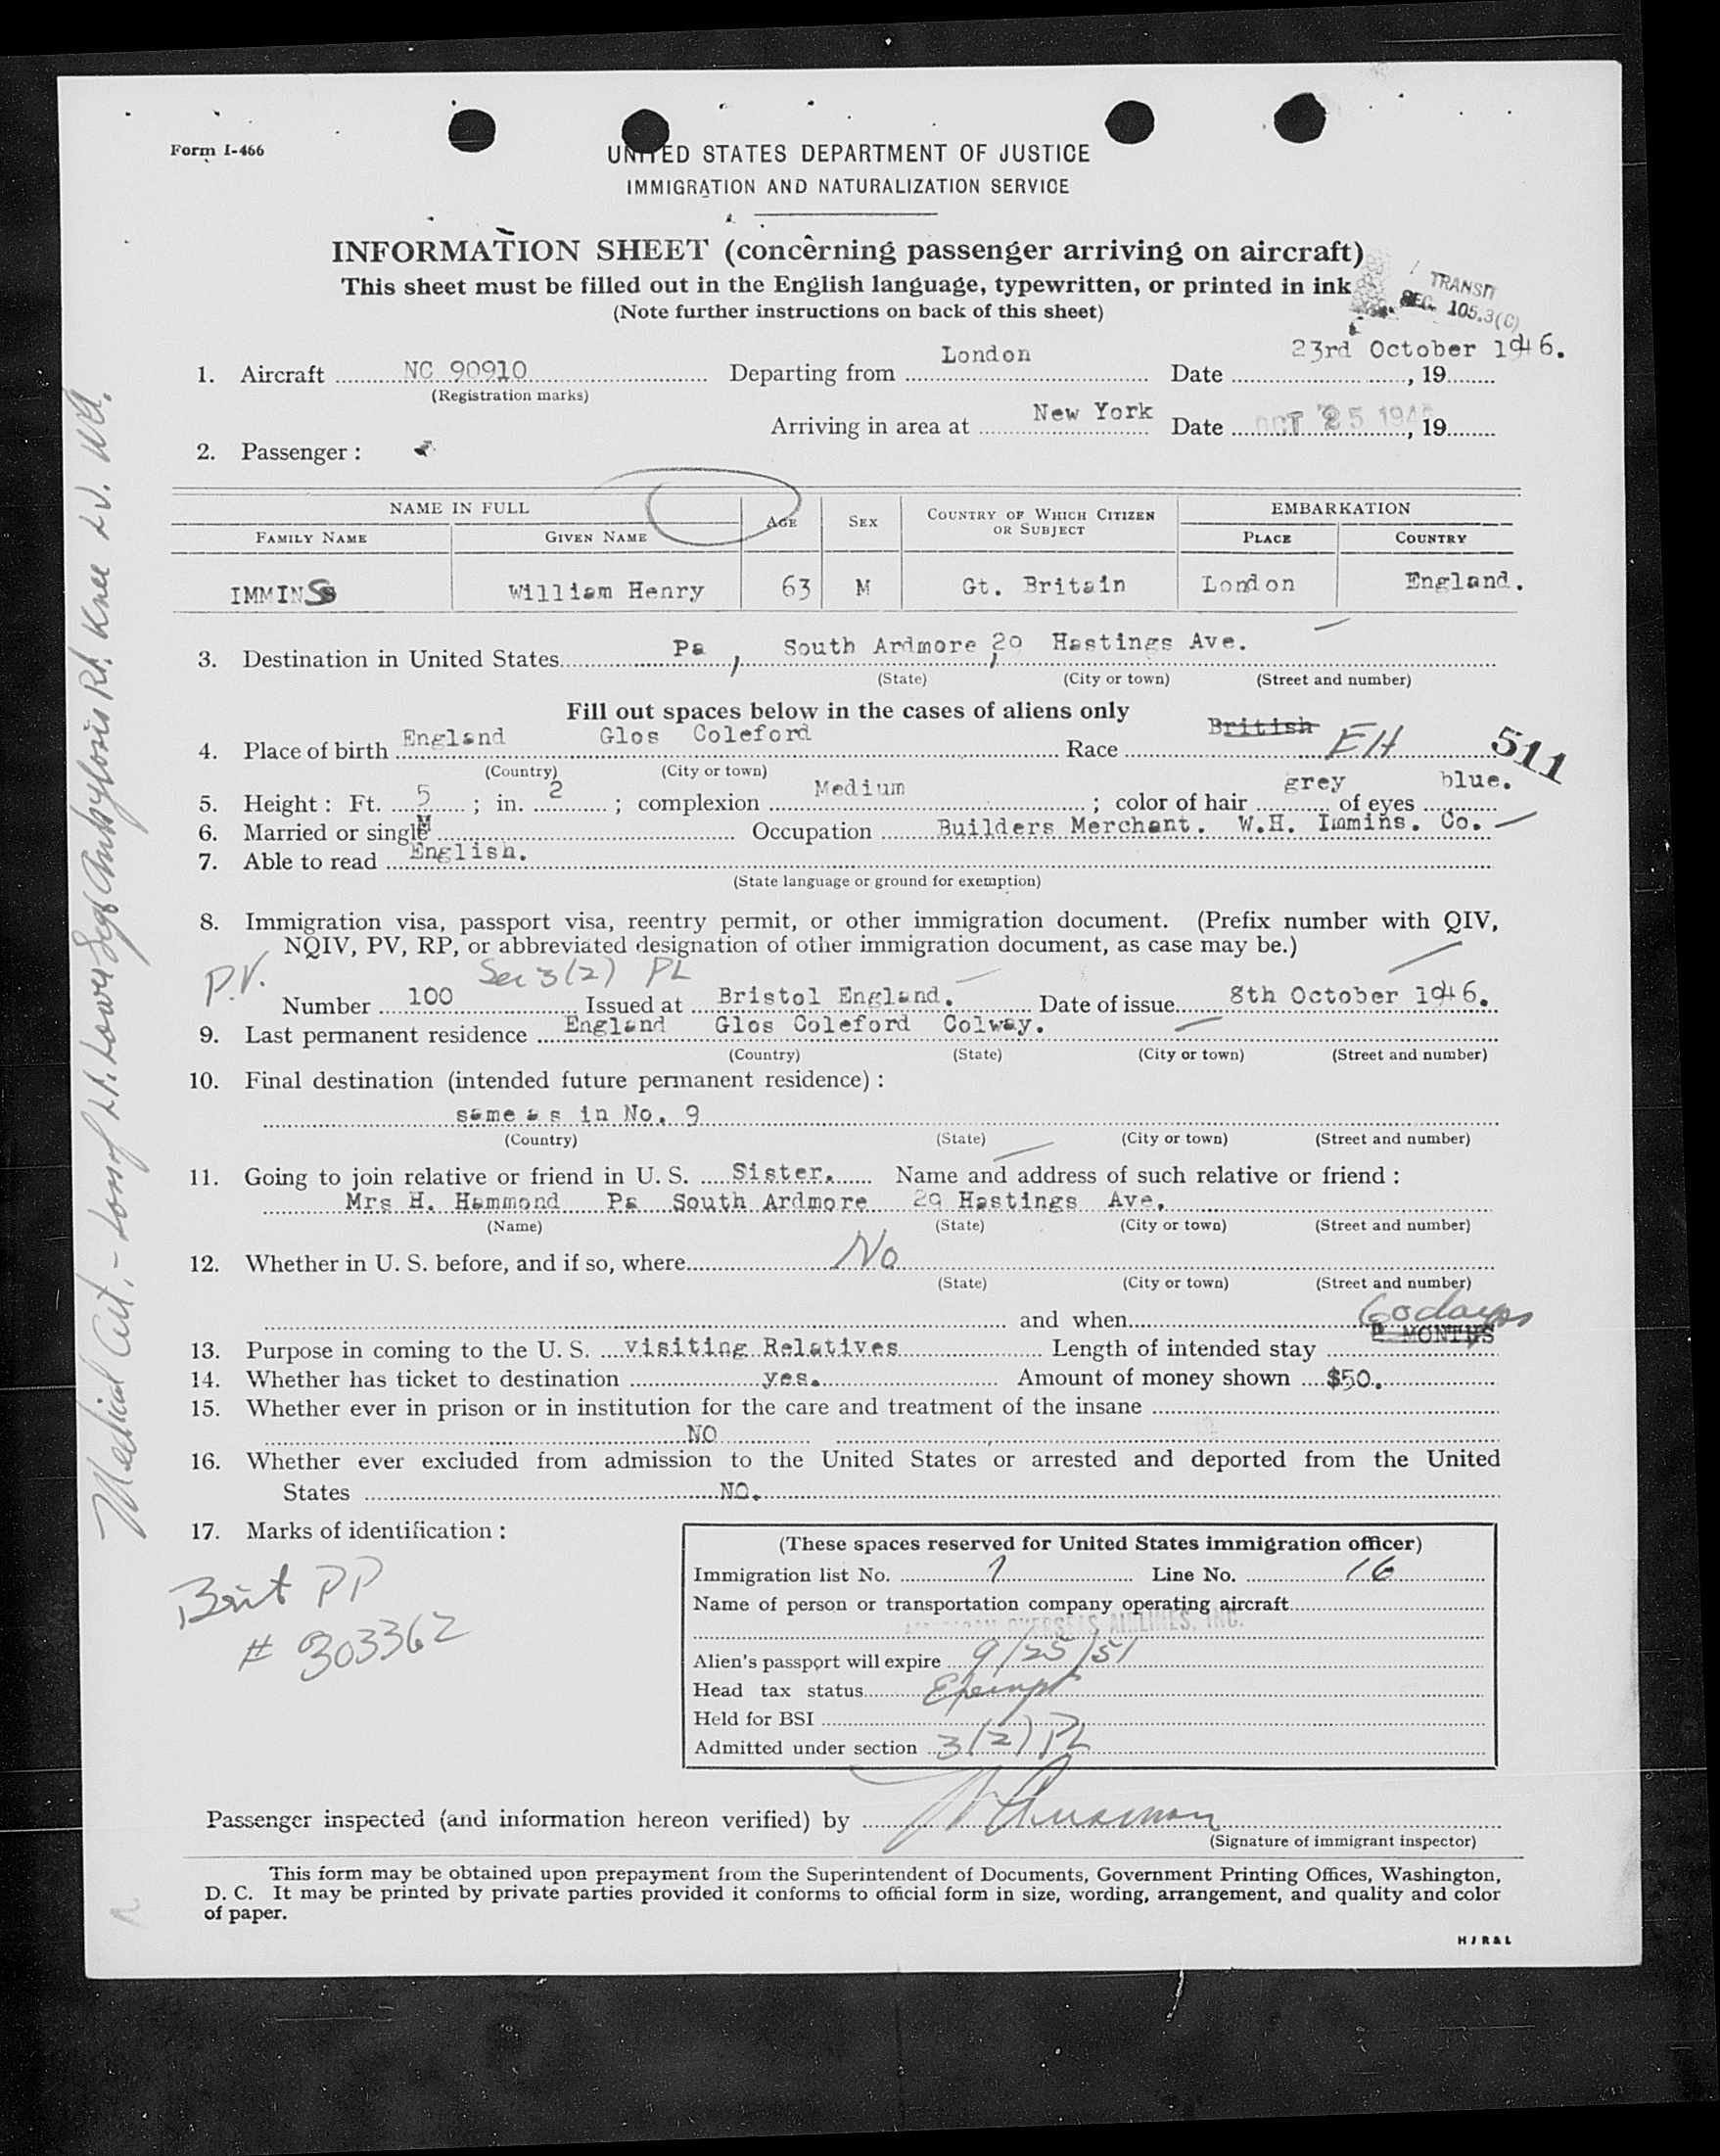 Form I-466
UNITED STATES DEPARTMENT OF JUSTICE
IMMIGRATION AND NATURALIZATION SERVICE
INFORMATION SHEET (concerning passenger arriving on aircraft)
This sheet must be filled out in the English language, typewritten, or printed in ink
(Note further instructions on back of this sheet)
TRANSIT
SEC. 105.3(C)
1. Aircraft NC 90910 Departing from London Date 23rd October 1946. , 19
(Registration marks)
Arriving in area at New York Date OCT 25 1946 , 19
2. Passenger :
NAME IN FULL AGE SEX COUNTRY OF WHICH CITIZEN OR SUBJECT EMBARKATION
FAMILY NAME GIVEN NAME PLACE COUNTRY
IMMINS William Henry 63 M Gt. Britain London England.
3. Destination in United States Pa , South Ardmore , 29 Hastings Ave.
(State) (City or town) (Street and number)
Fill out spaces below in the cases of aliens only
4. Place of birth England Glos Coleford Race British EH 511
(Country) (City or town)
5. Height : Ft. 5 ; in. 2 ; complexion Medium ; color of hair grey of eyes blue.
6. Married or single M Occupation Builders Merchant. W.H. Immins. Co.
7. Able to read English.
(State language or ground for exemption)
8. Immigration visa, passport visa, reentry permit, or other immigration document. (Prefix number with QIV,
NQIV, PV, RP, or abbreviated designation of other immigration document, as case may be.)
P.V. Sec 3(2) PL
Number 100 Issued at Bristol England. Date of issue 8th October 1946.
9. Last permanent residence England Glos Coleford Colway.
(Country) (State) (City or town) (Street and number)
10. Final destination (intended future permanent residence) :
same as in No. 9
(Country) (State) (City or town) (Street and number)
11. Going to join relative or friend in U. S. Sister. Name and address of such relative or friend :
Mrs H. Hammond Pa South Ardmore 29 Hastings Ave.
(Name) (State) (City or town) (Street and number)
12. Whether in U. S. before, and if so, where No
(State) (City or town) (Street and number)
and when
60 days
13. Purpose in coming to the U. S. visiting Relatives Length of intended stay MONTHS
14. Whether has ticket to destination yes. Amount of money shown $50.
15. Whether ever in prison or in institution for the care and treatment of the insane
NO
16. Whether ever excluded from admission to the United States or arrested and deported from the United
States NO.
17. Marks of identification :
Brit PP
# 303362
(These spaces reserved for United States immigration officer)
Immigration list No. 1 Line No. 16
Name of person or transportation company operating aircraft
AMERICAN OVERSEAS AIRLINES, INC.
Alien's passport will expire 9/25/51
Head tax status Exempt
Held for BSI
Admitted under section 3(2) PL
Passenger inspected (and information hereon verified) by
(Signature of immigrant inspector)
This form may be obtained upon prepayment from the Superintendent of Documents, Government Printing Offices, Washington,
D. C. It may be printed by private parties provided it conforms to official form in size, wording, arrangement, and quality and color
of paper.
H J R & L
Medical Cert. - Loss of Lt. Lower Leg & Ankylosis Rt. Knee